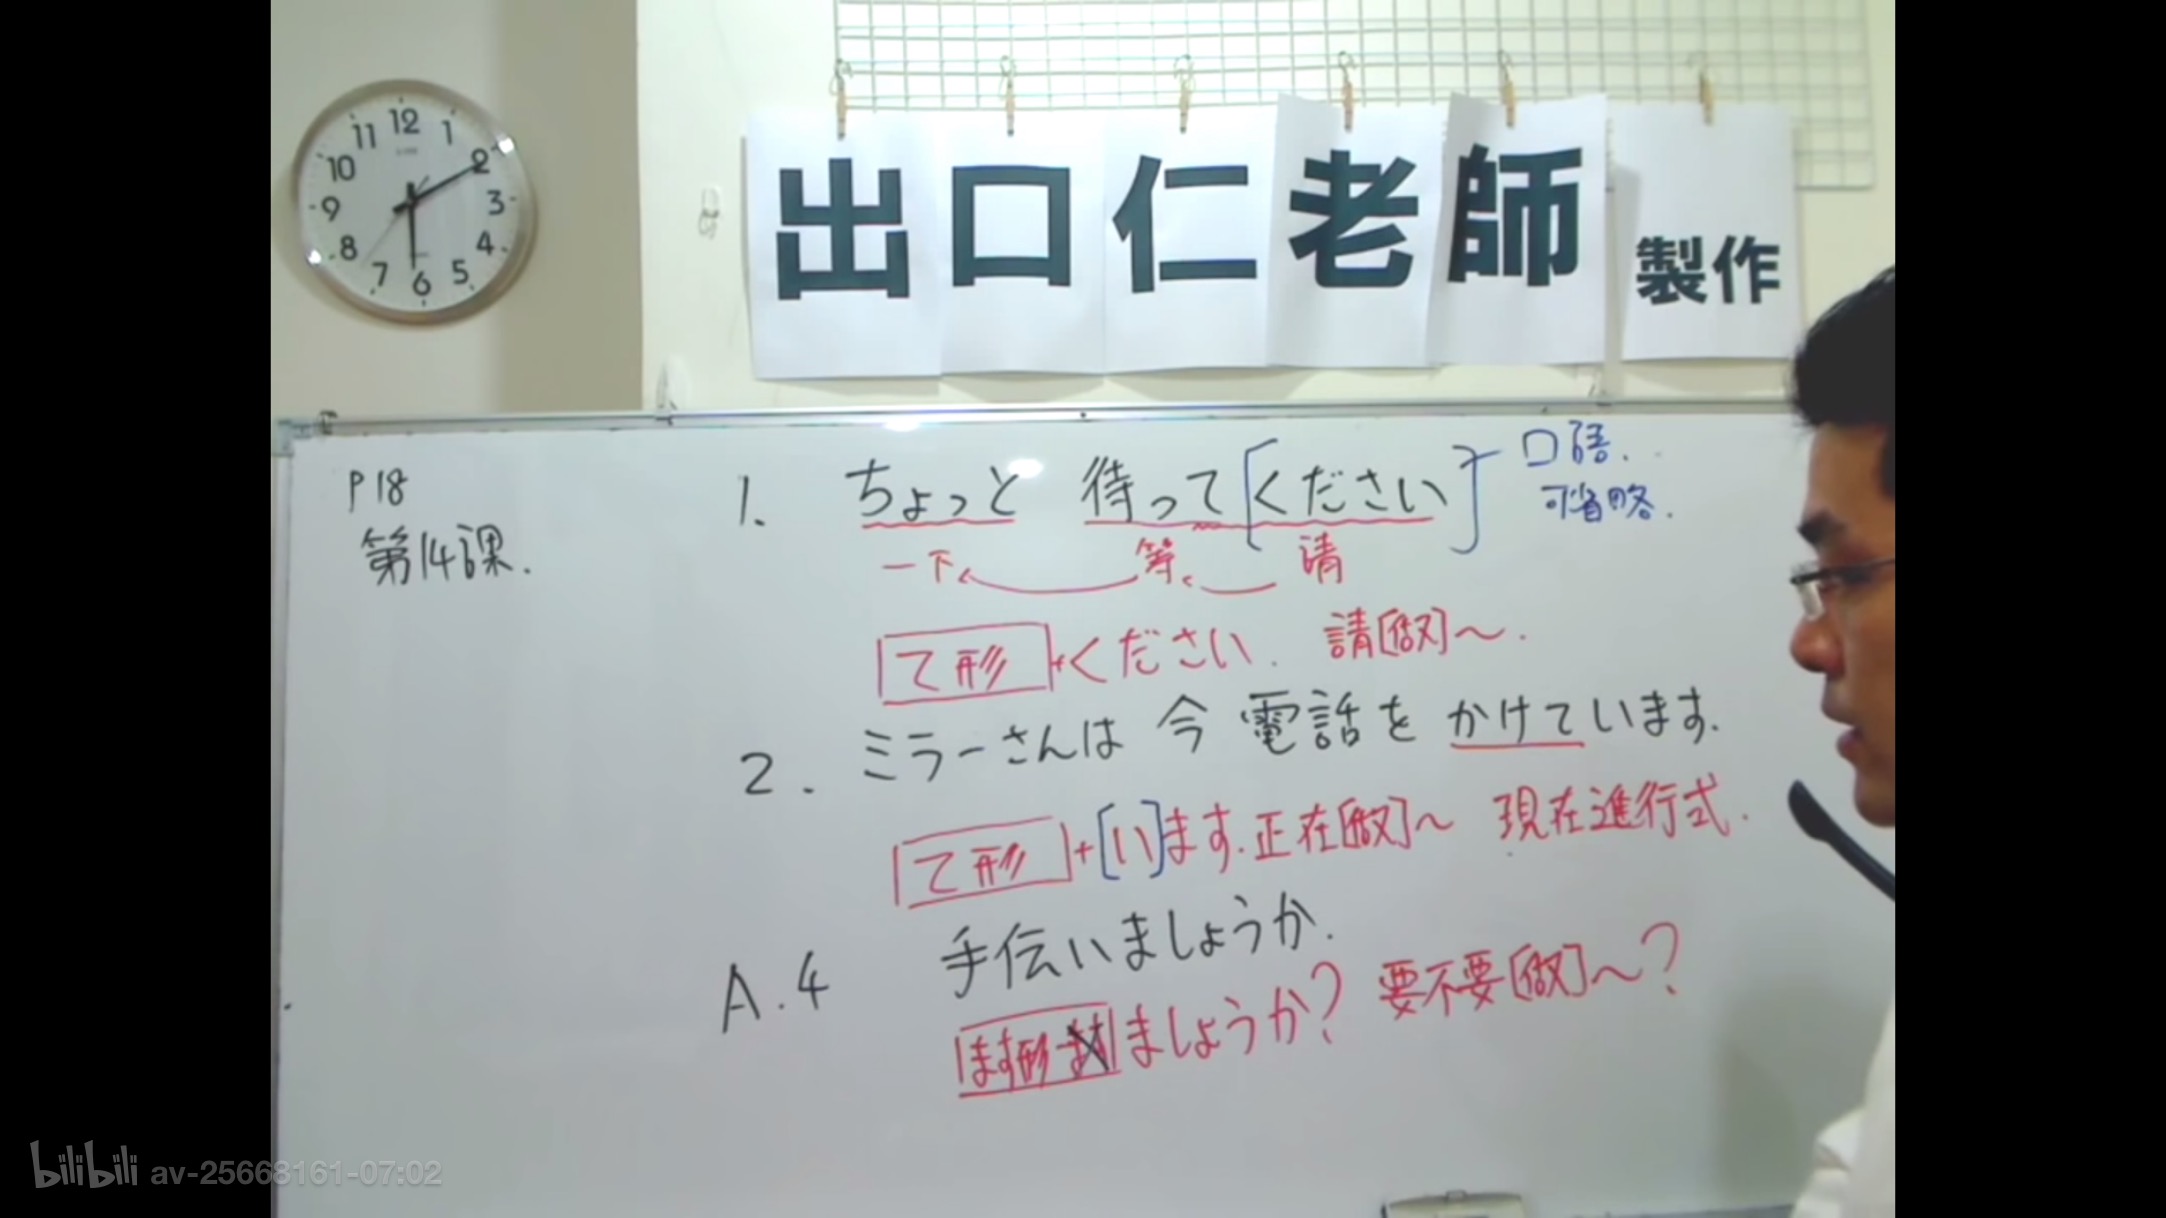 12 1 2 3 4 5 6 7 8 9 10 11
出口仁老師 製作
P18
第14課.
1. ちょっと 待って[ください] 口語.
可省略.
一下 等 请
て形+ください. 請[做]～.
2. ミラーさんは 今 電話を かけています.
て形+[い]ます.正在[做]～ 現在進行式.
A.4 手伝いましょうか.
ます形-ます ましょうか? 要不要[做]～?
bilibili av-25668161-07:02